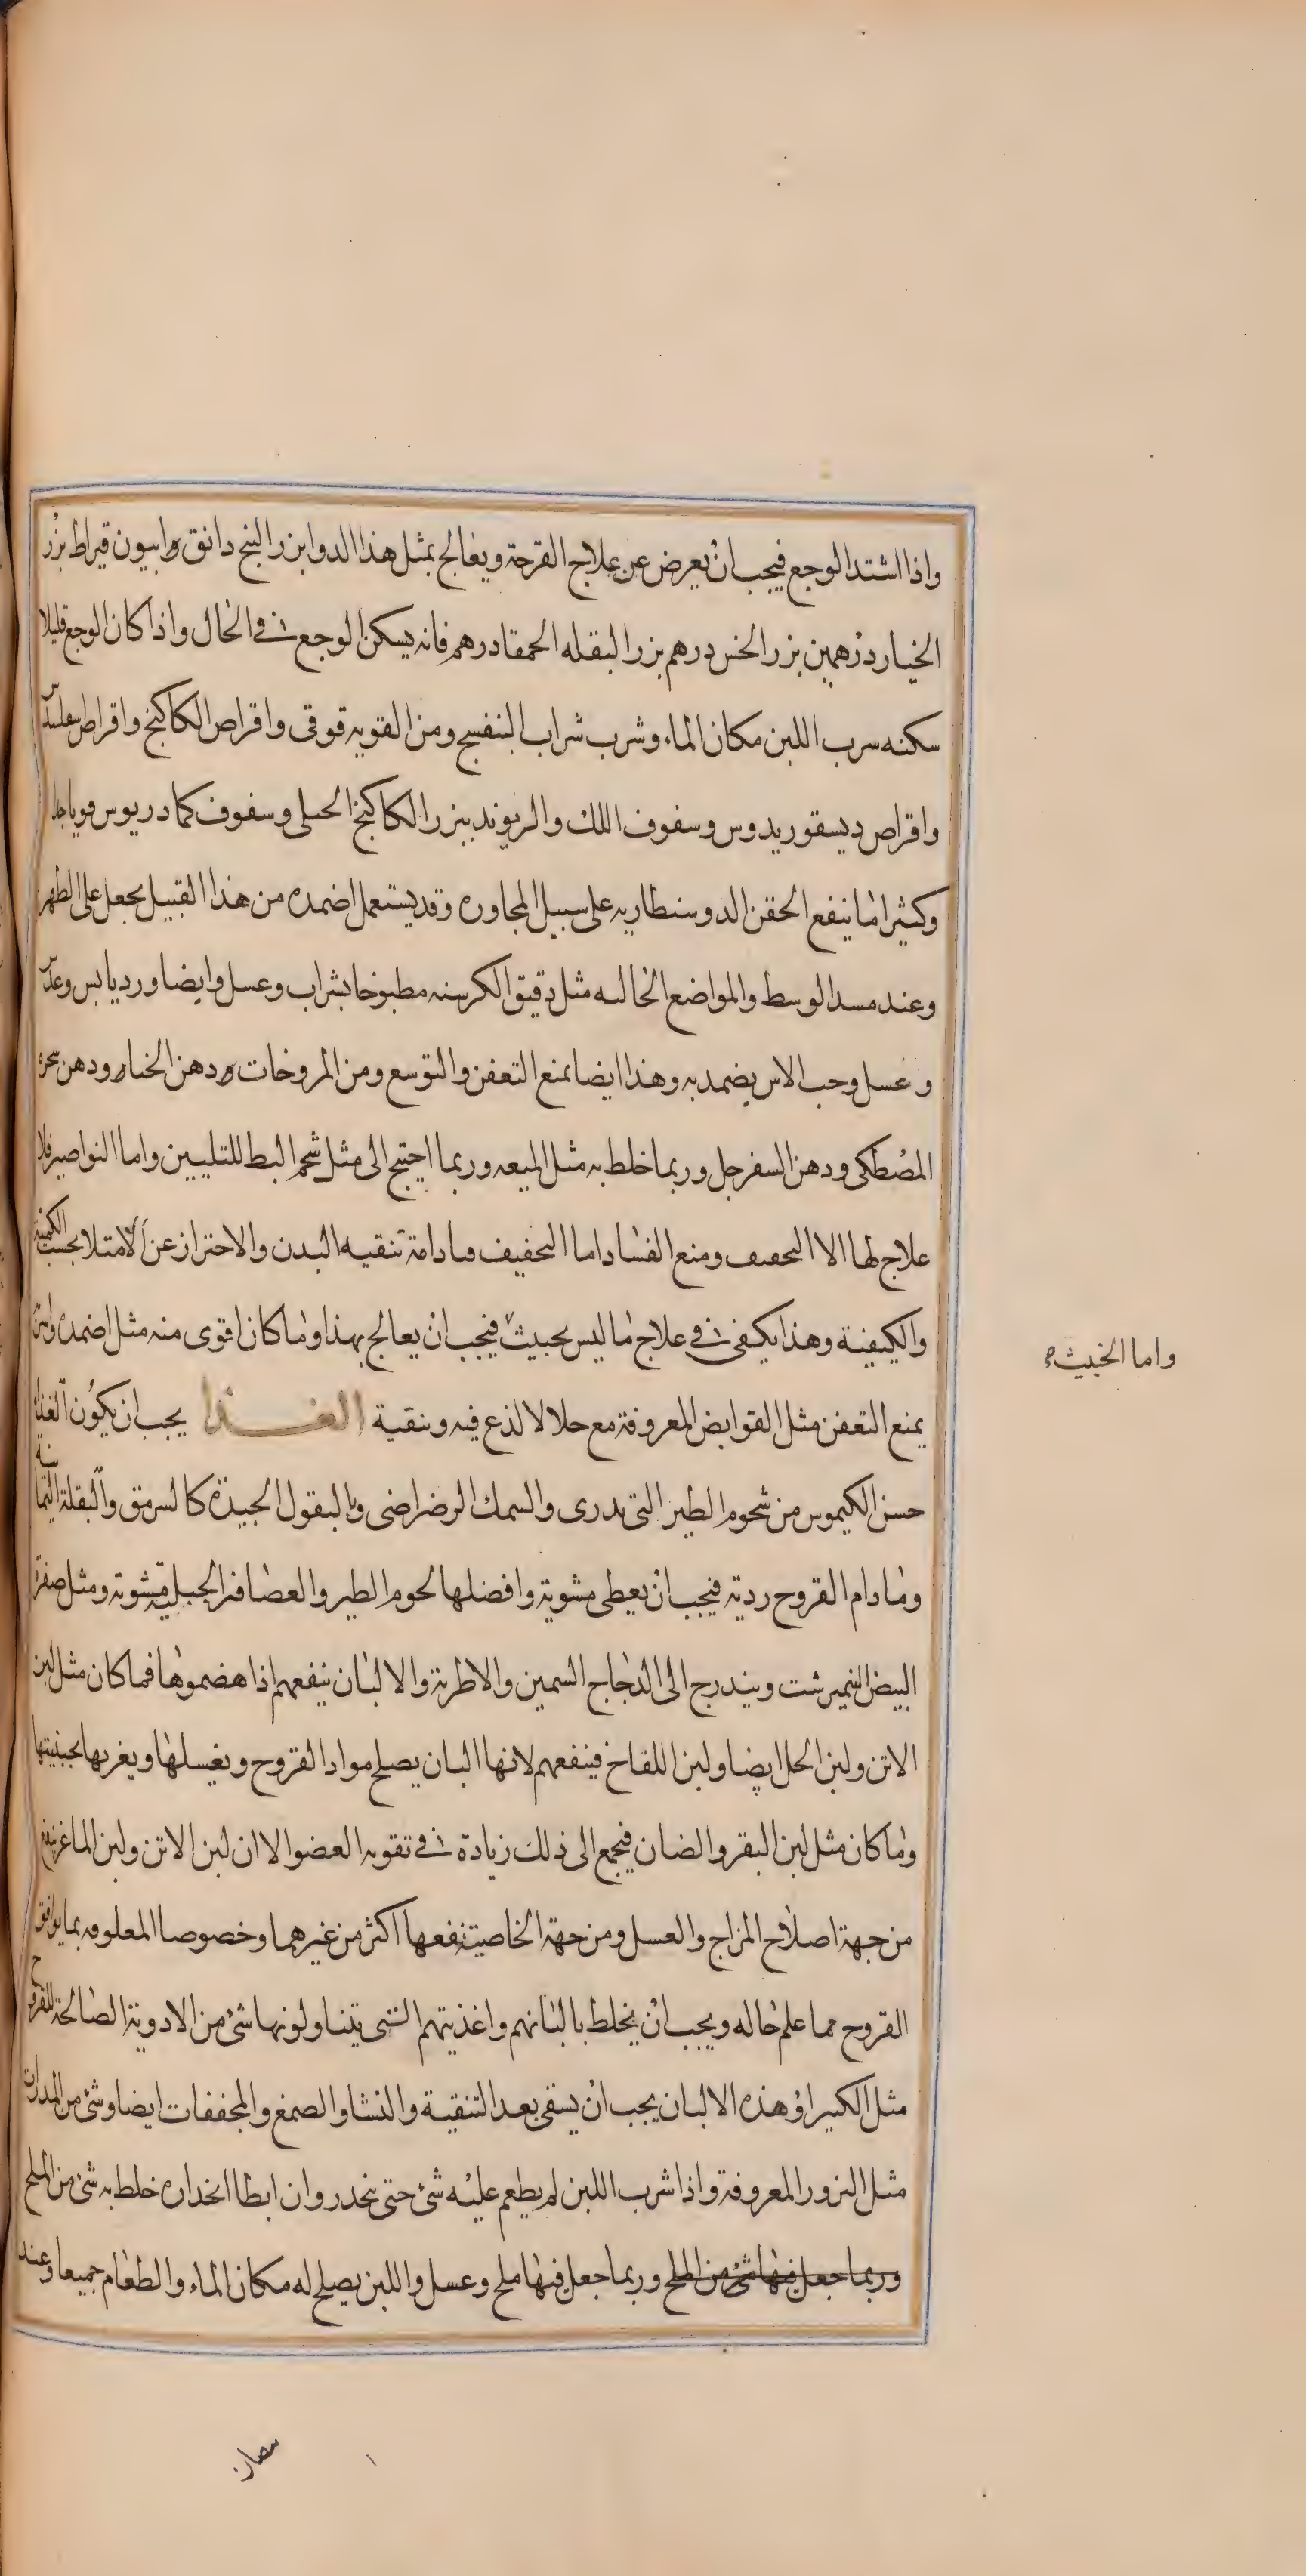 واذا اشتد الوجع فيجب ان يعرض عن علاج القرحة ويعالج بمثل هذا الدوا بزر البنج دانق وابيون قيراط بزر
الخيار درهمين بزر الخس درهم بزر البقله الحمقا درهم فانه يسكن الوجع في الحال واذا كان الوجع قليلا
سكنه سرب اللبن مكان الماء وشرب شراب البنفسج ومن القويه قوقى واقراص الكاكنج واقراص
واقراص ديسقوريدوس وسفوف اللك والريوند ببزر الكاكنج الجبلى وسفوف كمادريوس
وكثيرا ما ينفع الحقن الدوسنطاريه على سبيل المجاوره وقد يستعمل اضمده من هذا القبيل يجعل على الظهر
وعند مسد الوسط والمواضع الخاليه مثل دقيق الكرسنه مطبوخا بشراب وعسل وايضا ورد يابس وعدس
وعسل وحب الاس يضمد به وهذا ايضا يمنع التعفن والتوسع ومن المروخات دهن الحنا ودهن شجره
المصطكى ودهن السفرجل وربما خلط به مثل الميعه وربما احتيج الى مثل شحم البط للتليين واما النواصير فلا
علاج لها الا التجفيف ومنع الفساد اما التجفيف فبادامة تنقيه البدن والاحتراز عن الامتلا بحسب الكمية
والكيفية وهذا يكفى في علاج ما ليس بخبيث فيجب ان يعالج بهذا وما كان اقوى منه مثل اضمده
واما الخبيث
يمنع التعفن مثل القوابض المعروفة مع حلا لا لذع فيه وتنقية الغذا يجب ان يكون الغذاء
حسن الكيموس من شحوم الطير التى تدرى والسمك الرضراضى وبالبقول الجيدة كالسرمق والبقلة اليمانية
وما دام القروح ردية فيجب ان يعطى مشوية وافضلها لحوم الطير والعصافير الجبلية مشوية ومثل صفرة
البيض النيمبرشت ويندرج الى الدجاج السمين والاطرية والالبان ينفعهم اذا هضموها فما كان مثل لبن
الاتن ولبن الخل ايضا ولبن اللقاخ فينفعهم لانها البان يصلح مواد القروح ويغسلها ويغربها بجبنيتها
وما كان مثل لبن البقر والضان فيجمع الى ذلك زيادة في تقويه العضو الا ان لبن الاتن ولبن الماغر ينفع
من جهة اصلاح المزاج والعسل ومن جهة الخاصية نفعها اكثر من غيرهما وخصوصا المعلوفه بما يوافق
القروح مما علم حاله ويجب ان يخلط بالبانهم واغذيتهم التى يتناولونها شئ من الادوية الصالحة للقروح
مثل الكبيرا وهذه الالبان يجب ان يسقى بعد التنقية والنشا والصمغ والمجففات ايضا وشئ من المدرات
مثل البزور المعروفة واذا شرب اللبن لم يطعم عليه شئ حتى ينحدر وان ابطا انحداره خلط به شئ من الملح
وربما جعل فيها شئ من الملح وربما جعل فيها ملح وعسل واللبن يصلح له مكان الماء والطعام جميعا وعند